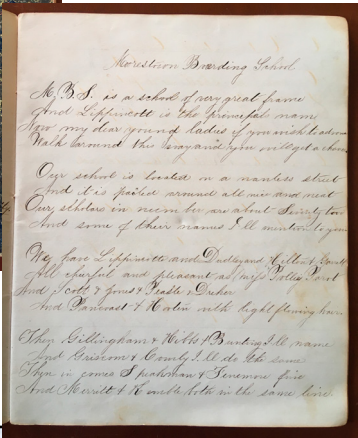 Morestown Boarding School
M. B. S. is a school of very great frame
And Lippincott is the principal nam
Now my dear yound ladies if you wish to
Walk around this way and you will get a
Our school is located in a nanless street
And it is pailed around all nice and neat
Our scholars in number are about Seventy two
And some of their names I'll mention to you
We have Lippincotts and Dudley and Hilliard &
All chirful and pleasant as miss Pollee
And Scott & Jones & Peaslee & Dreher
And Pancoast & Hatin with light flowing hair
Then Gillingham & Hibbs & Bunting I'll name
And Griscom & County I'll do the same
Then in comes Speakman & Fenemore fine
And Merritt & Humble both in the same line